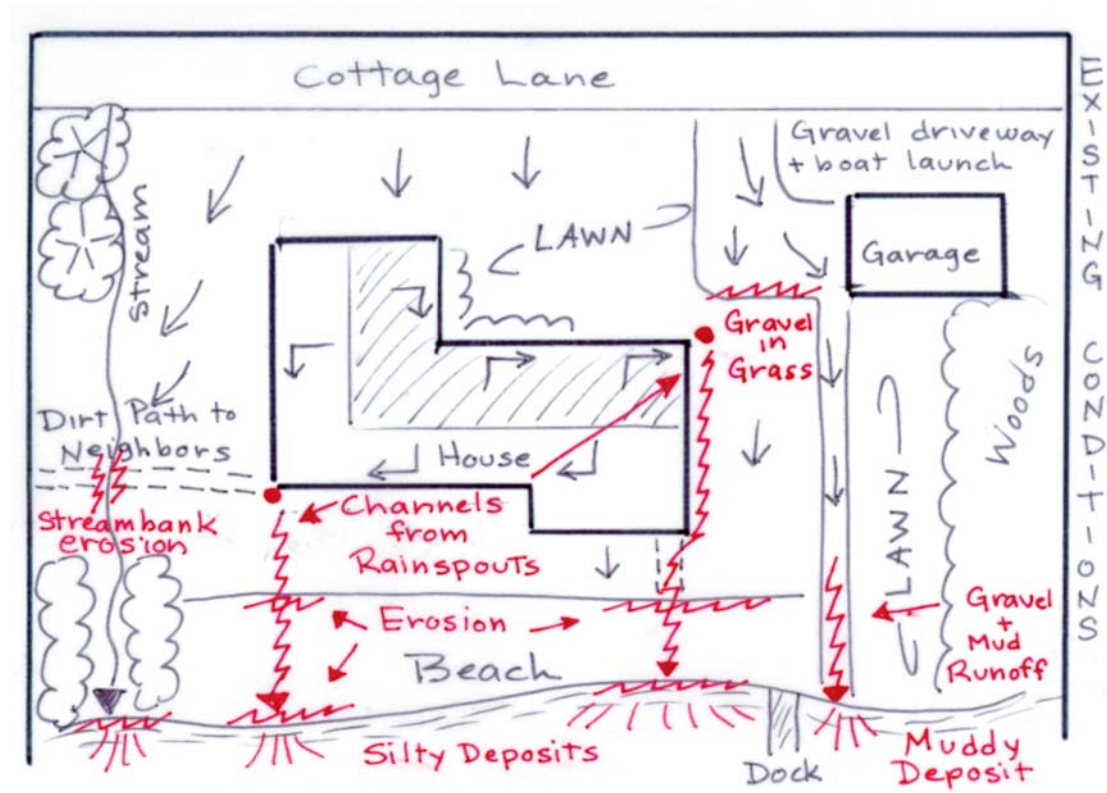 Cottage Lane
EXISTING CONDITIONS
Gravel driveway
+ boat launch
Stream
LAWN
Garage
Gravel
in
Grass
Woods
Dirt Path to
Neighbors
House
LAWN
Streambank
erosion
Channels
from
Rainspouts
Erosion
Gravel
+
Mud
Runoff
Beach
Silty Deposits
Dock
Muddy
Deposit